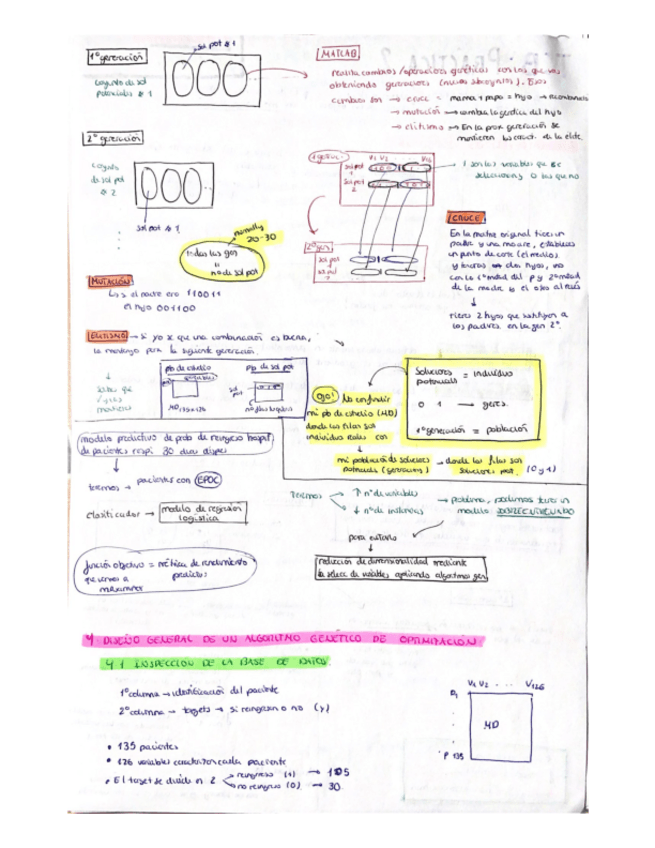 1ª generación
sol pot # 1
conjunto de sol
potenciales # 1
MATLAB
realiza cambios/operaciones genéticas con los que va
obteniendo generaciones (nuevos subconjuntos). Esos
cambios son → cruce = mama + papa = hijo → recombinando
→ mutación → cambia la genética del hijo
→ elitismo → En la prox generación se
mantienen las caract. de la elite.
2ª generación
conjunto
de sol pot
# 2
sol pot # 1
todas las gen
nº de sol pot
normally
20-30
1ª gener.
V1 V2 V126
sol pot
1
sol pot
2
1 son las variables que se
seleccionan y 0 las que no
2ª gen
sol pot
sol pot
CRUCE
En la matriz original tienes un
padre y una madre, estableces
un punto de corte (el medio)
y creas dos hijos, uno
con la 1ª mitad del p y 2ª mitad
de la madre y el otro al revés
↓
tienes 2 hijos que sustituyen a
los padres en la gen 2ª.
MUTACIÓN
Si el padre era 110011
el hijo 001100
ELITISMO → si yo sé que una combinación es buena,
la mantengo para la siguiente generación.
pb de estudio
pb de sol pot
variables
MD 135x126
sol
pot
Ojo! No confundir
mi pb de estudio (MD)
donde las filas son
individuos reales con
mi población de soluciones
potenciales (generaciones)
→ donde las filas son
soluciones pot. (0 y 1)
Soluciones = individuos
potenciales
0 1 → genes.
1ª generación = población
modelo predictivo de prob de reingreso hospit
de pacientes respi 30 días después
tenemos → pacientes con EPOC
clasificador → modelo de regresión
logística
Tenemos
↑ nº de variables
↓ nº de instancias
→ problema, podemos tener un
modelo SOBREENTRENADO
para evitarlo
↓
reducción de dimensionalidad mediante
la selecc de variables aplicando algoritmos gen.
función objetivo = métrica de rendimiento
que vamos a predictivo
maximizar
4 DISEÑO GENERAL DE UN ALGORITMO GENÉTICO DE OPTIMIZACIÓN
4.1 INSPECCIÓN DE LA BASE DE DATOS.
1ª columna → identificación del paciente
2ª columna → targets → si reingresa o no (y)
• 135 pacientes
• 126 variables caracterizan cada paciente
• El target se divide en 2
reingreso (1) → 105
no reingreso (0) → 30
V1 V2 . . . V126
P1
MD
P 135